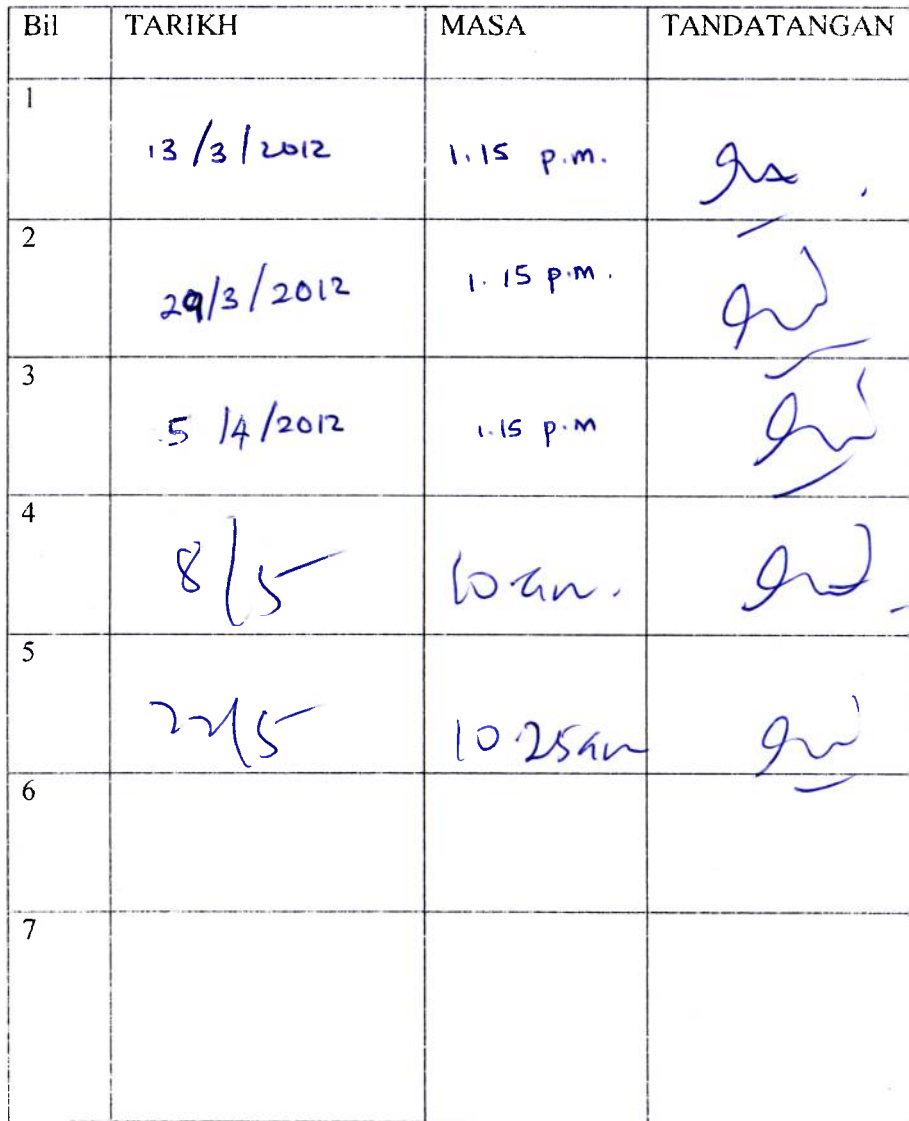 Bil TARIKH MASA TANDATANGAN
1
13/3/2012 1.15 p.m.
2
29/3/2012 1.15 p.m.
3
5/4/2012 1.15 p.m
4
8/5 10 am.
5
22/5 10.25am
6
7